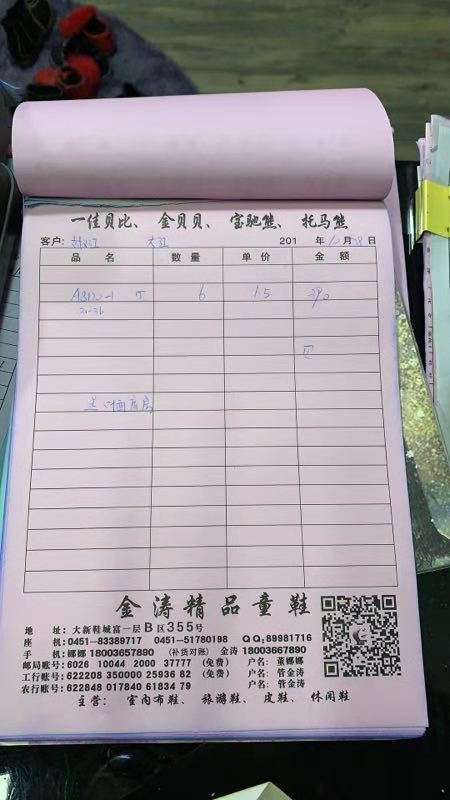 一佳贝比、 金贝贝、 宝驰熊、 托马熊
客户: 201 年 月 日
品 名 数 量 单 价 金 额
6 65 390
金涛精品童鞋
地 址: 大新鞋城富一层B区355号
座 机: 0451-83389717 0451-51780198 QQ:89981716
手 机: 娜娜 18003657890 (补货对账) 金涛 18003667890
邮局账号: 6026 10044 2000 37777 (免费) 户名: 董娜娜
工行账号: 622208 350000 25936 82 (免费) 户名: 管金涛
农行账号: 622848 017840 61834 79 户名: 管金涛
主营: 室内布鞋、 旅游鞋、 皮鞋、 休闲鞋